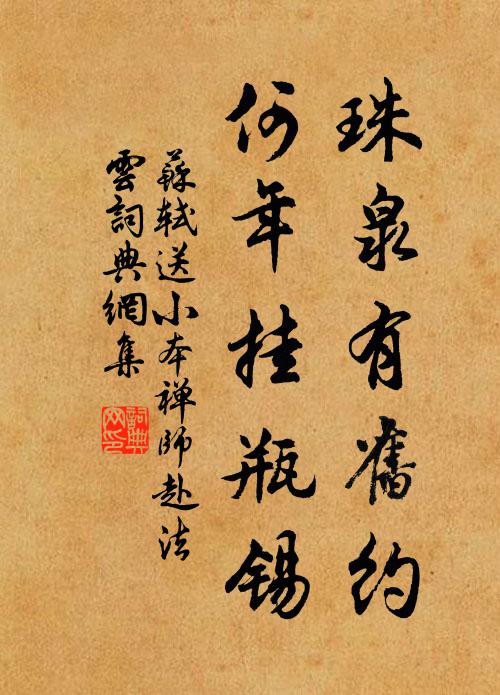 珠泉有舊約
何年挂瓶錫
蘇軾送小本禪師赴法
雲詞典網集
詞典網印